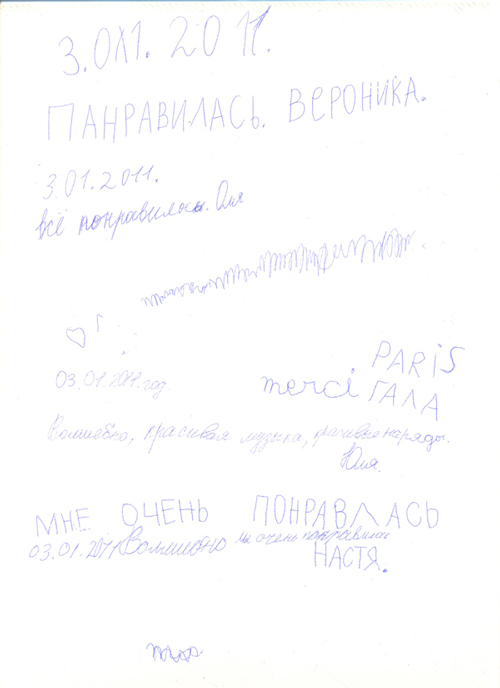 3.01.2011.
ПАНРАВИЛАСЬ. ВЕРОНИКА.
3.01.2011.
всё понравилось. Оля
PARIS
merci ГАЛА
03.01.2011 год.
Волшебно, красивая музыка, наряды.
Юля.
МНЕ ОЧЕНЬ ПОНРАВЛАСЬ
03.01.2011 очень
НАСТЯ.